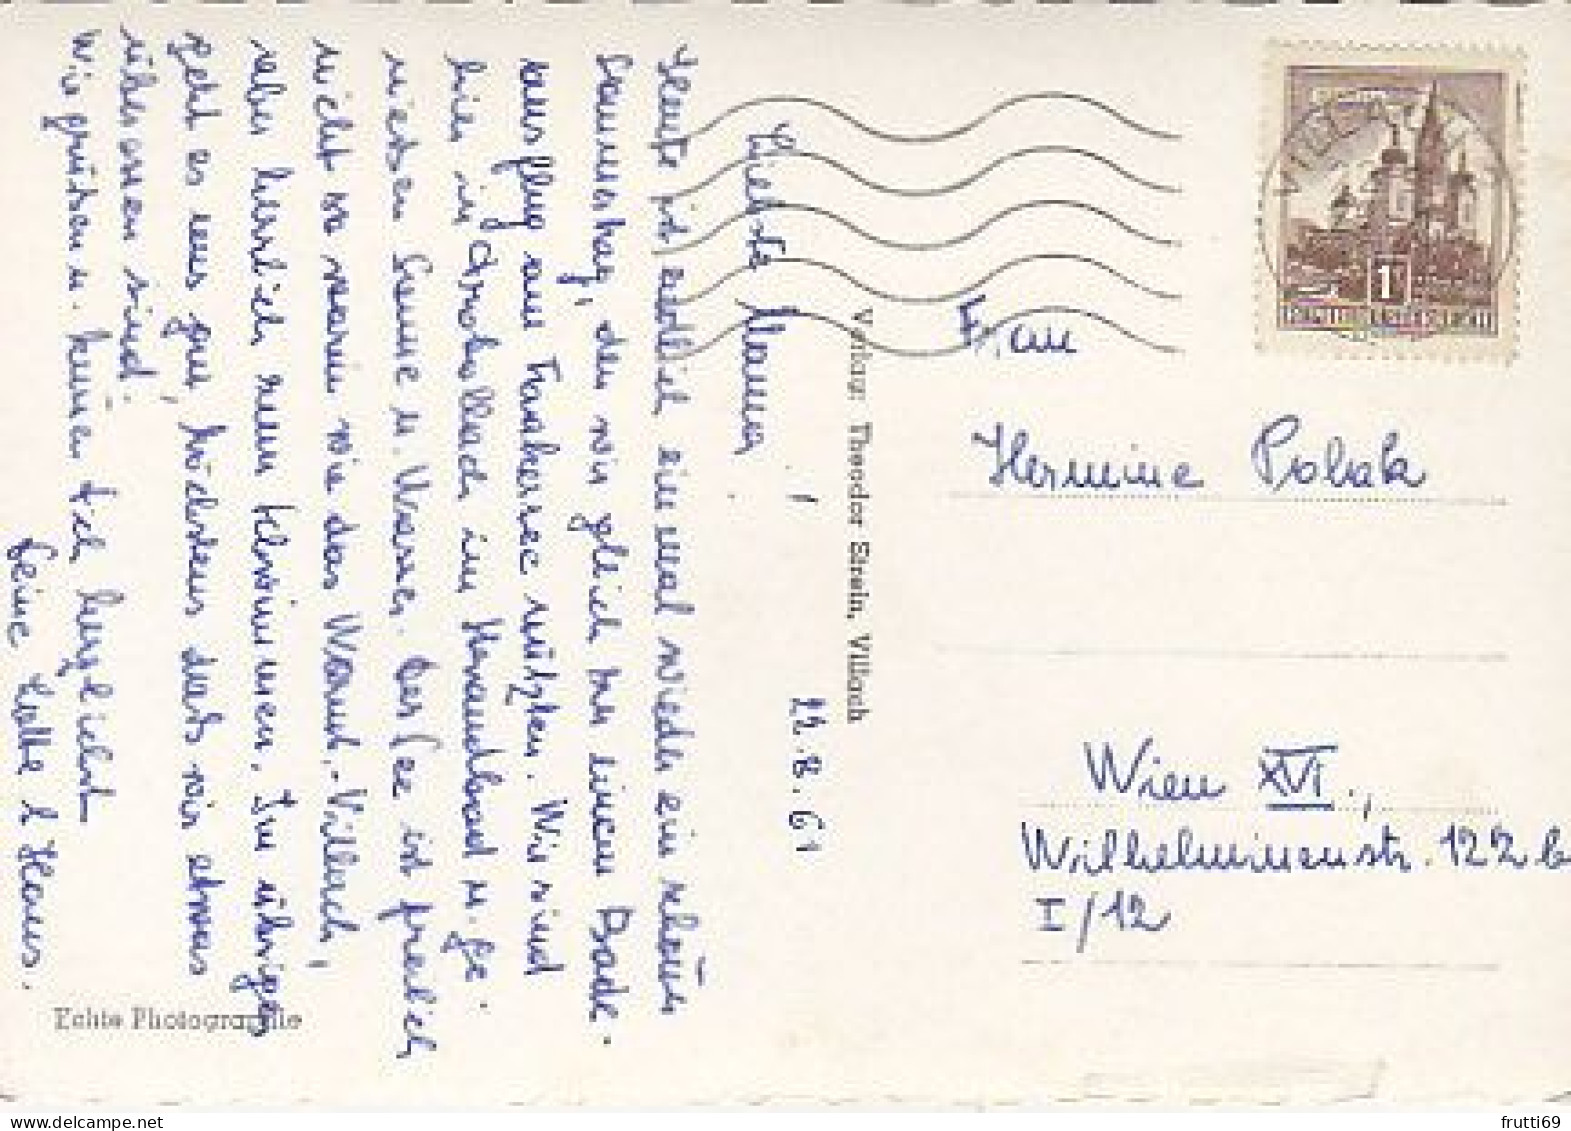 22.8.61
Liebste Mama!
Heute ist endlich einmal wieder ein schöner
Sommertag, den wir gleich zu einem Bade-
ausflug am Faakersee nützten. Wir sind
hier in Drobollach im Strandbad u. ge-
niessen Sonne u. Wasser. Der See ist freilich
nicht so warm wie das Warmb.-Villach,
aber herrlich zum Schwimmen. Im übrigen
geht es uns gut, höchstens dass wir etwas
überessen sind.
Wir grüßen u. küssen Dich herzlichst
Deine Lotte & Hans.
Echte Photographie
Verlag: Theodor Strein, Villach
VILLACH
1
REPUBLIK ÖSTERREICH
Frau
Hermine Polak
Wien XVI.,
Wilhelminenstr. 122 b
I/12
frutti69